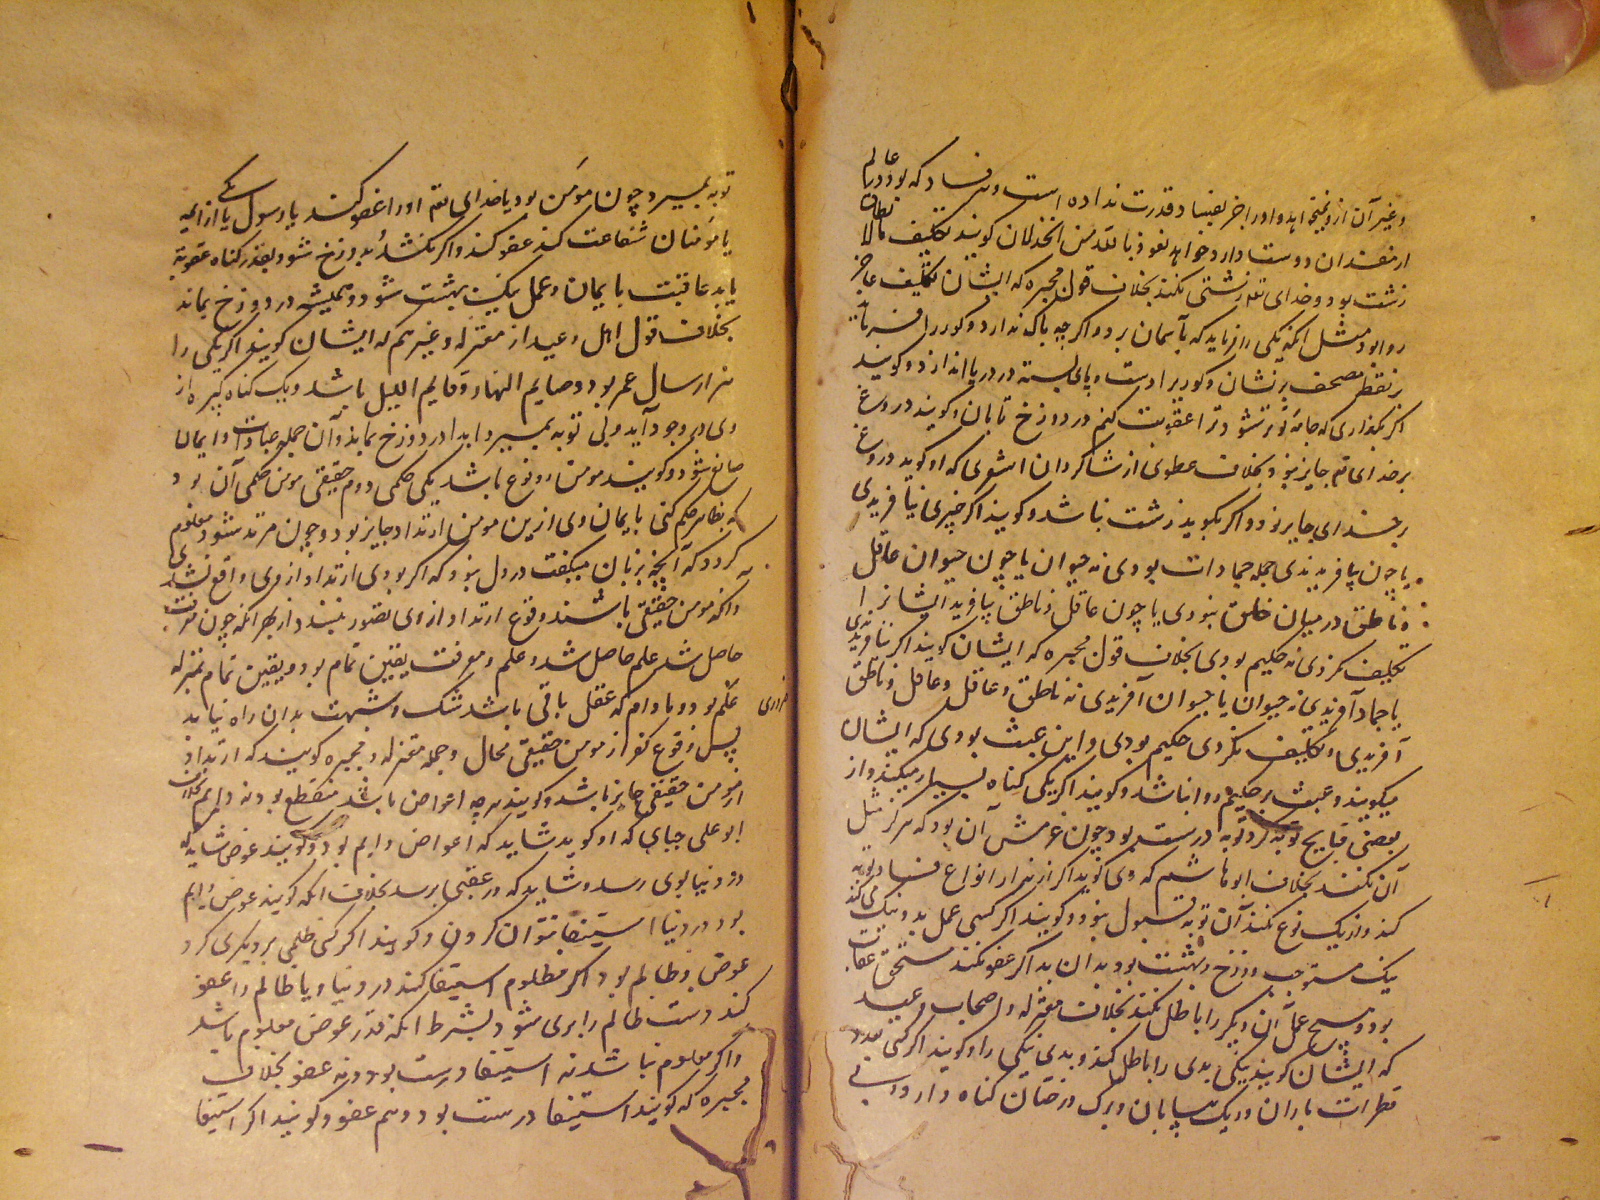 و غیر آن ازو نمیخواهد و او را جز بفساد قدرت نداده است و هر فساد که بود در عالم
از مفسدان دوست دارد و خواهد نعوذ بالله من الخذلان کویند تکلیف مالا یطاق
زشت بود و خدای تع زشتی نکند بخلاف قول مجبره که ایشان تکلیف عاجز
روا بود مثل آنکه یکی را فرماید که بآسمان بر رود اکرچه پای ندارد و کور را فرماید
بر نقط مصحف بر نشان و کور را دست و پای بسته در دریا اندازد و کویند
اکر بگذاری که جامه تو تر شود ترا عقوبت کنم در دوزخ تابان و کویند دروغ
بر خدای تع جایز نبود بخلاف عطوی از شاکردان اشعری که او کوید دروغ
بر خدای جایز بود و اکر بکوید زشت نباشد و کویند اکر چیزی نیافریدی
یا چون بیافریدی جمله جمادات بودی نه حیوان یا چون حیوان عاقل
و ناطق در میان خلق نبودی یا چون عاقل و ناطق بیافرید ایشانرا
تکلیف نکردی نه حکیم بودی بخلاف قول مجبره که ایشان کویند اکر نیافریدی
یا جماد آفریدی نه حیوان یا حیوان آفریدی نه ناطق و عاقل و عاقل و ناطق
آفریدی و تکلیف نکردی حکیم بودی و این عبث بودی که ایشان
میکویند و عبث بر حکیم روا نباشد و کویند اکر یکی کناه بسیار میکند و از
بعضی قبایح توبه کرد توبه درست بود چون غرمش آن بود که هرکز مثل
آن نکند بخلاف ابو هاشم که وی کوید اکر از هزار انواع فساد توبه
کند و از یک نوع نکند آن توبه قبول نبود و کویند اکر کسی عمل بد و نیک می کند
نیک مستوجب دوزخ و بهشت بود بدان بد اکر عفو نکند مستحق عقاب
بود و هیچ عمل آن دیکر را باطل نکند بخلاف معتزله و اصحاب وعید
که ایشان کویند نیکی بدی را باطل کند و بدی نیکی را و کویند اکر کسی بعدد
قطرات باران و ریک بیابان و برک درختان کناه دارد و بی
توبه بمیرد چون مومن بود یا خدای تع او را عفو کند یا رسول یا از ایمه یکی
یا مومنان شفاعت کند عفو کند و اکر نکند بدوزخ شود و بقدر کناه عقوبت
یابد عاقبت بایمان و عمل نیک بهشت شود و همیشه در دوزخ نماند
بخلاف قول اهل وعید از معتزله و غیرهم که ایشان کویند اکر یکی را
هزار سال عمر بود و صایم النهار و قایم اللیل باشد و یک کناه کبیره از
وی در وجود آید و بی توبه بمیرد ابدا در دوزخ بماند و آن جمله عبادات و ایمان
ضایع شود و کویند مومن دو نوع باشد یکی حکمی دوم حقیقی مومن حکمی آن بود
که بظاهر حکم کنی بایمان وی ازین مومن ارتداد جایز بود و چون مرتد شود معلوم
کردد که آنچه بزبان میکفت در دل نبود که اکر بودی ارتداد از وی واقع نشدی
و آنکه مومن حقیقی باشند وقوع ارتداد از وی تصور نبندد از بهر آنکه چون معرفت
حاصل شد علم حاصل شد و علم و معرفت یقین تمام بود و یقین تمام بمنزله
علم ضروری بود و مادام که عقل باقی باشد شک و شبهت بدان راه نیابد
پس وقوع کفر از مومن حقیقی محال و جمله معتزله و مجبره کویند که ارتداد
از مومن حقیقی جایز باشد و کویند هرچه اعواض باشد منقطع بود نه دایم بخلاف
ابو علی جبای که او کوید شاید که اعواض دایم بود و کویند عوض شاید که
در دنیا بوی رسد و شاید که در عقبی برسد بخلاف آنکه کویند عوض دایم
بود در دنیا استیفا نتوان کردن و کویند اکر کسی ظلمی بر دیکری کرد
عوض بر ظالم بود اکر مظلوم استیفا کند در دنیا و یا ظالم را عفو
کند دست ظالم را بری شود بشرط آنکه قدر عوض معلوم باشد
و اکر معلوم نباشد نه استیفا درست بود و نه عفو بخلاف
مجبره که کویند استیفا درست بود و هم عفو و کویند اکر استیفا